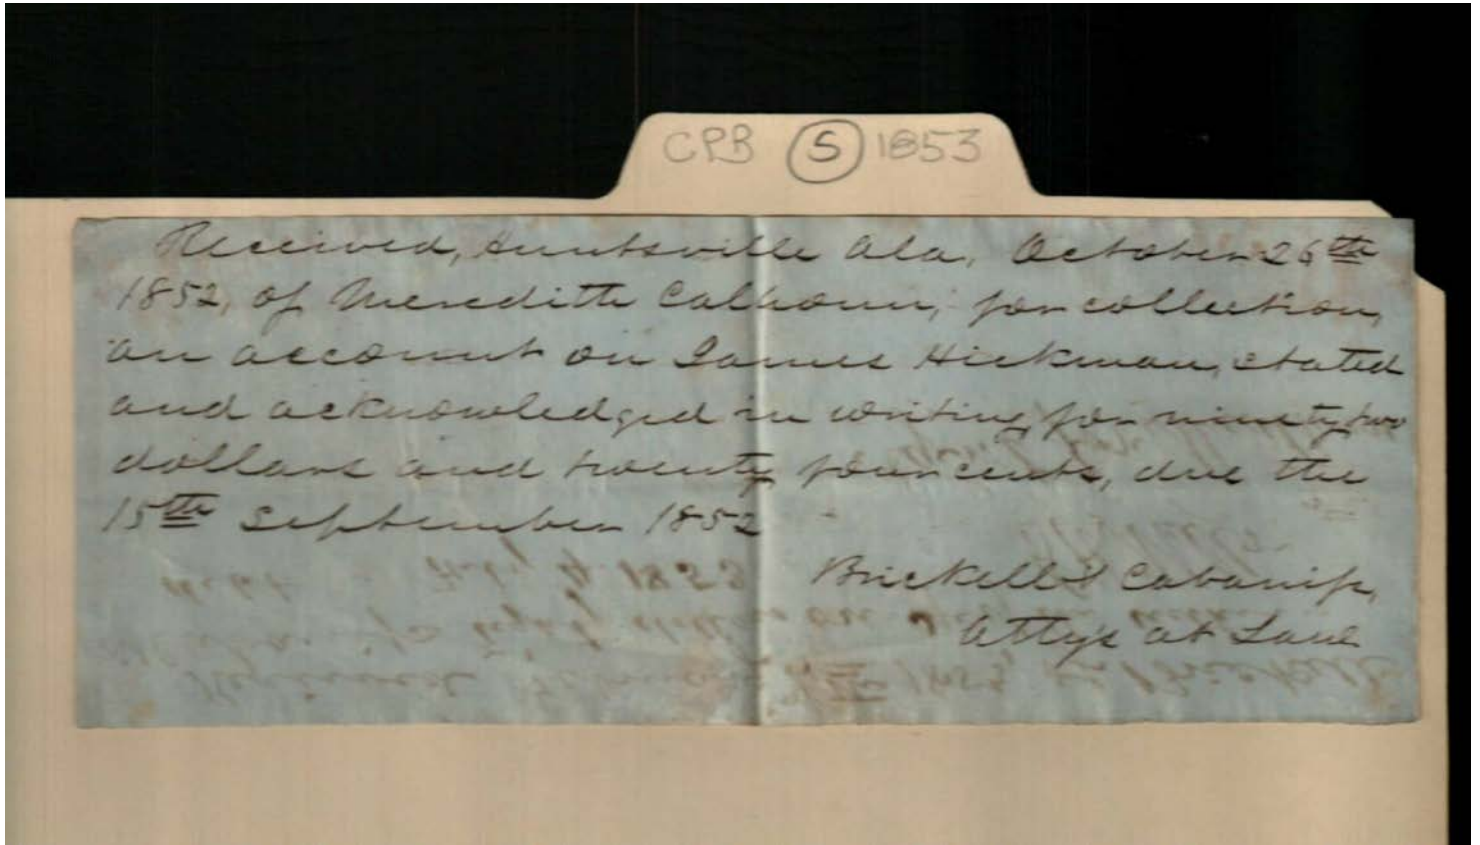 CPB S 1853
Received, Huntsville Ala, October 26th
1852, of Meredith Calhoun, for collection,
an account on James Hickman, stated
and acknowledged in writing for ninety two
dollars and twenty four cents, due the
15th September 1852
Brickell & Cabaniss,
Attys at Law